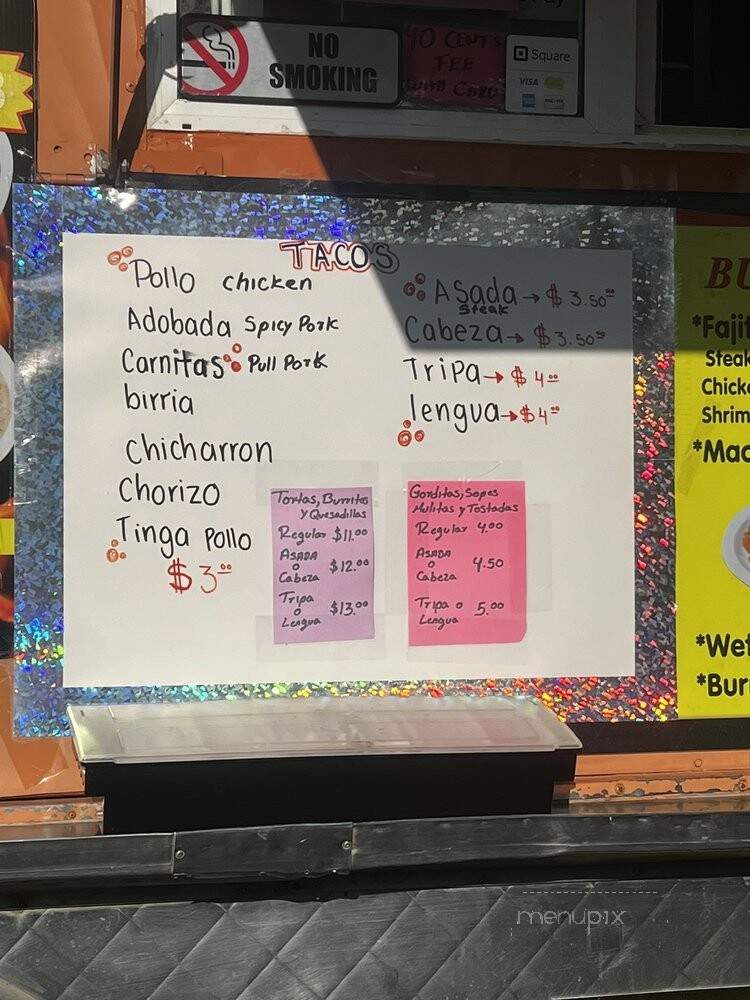 NO
SMOKING
40 CENTS
FEE
WITH CARD
Square
VISA
TACOS
Pollo chicken
Adobada Spicy Pork
Carnitas Pull Pork
birria
Chicharron
Chorizo
Tinga Pollo
$3.00
Asada → $3.50
Steak
Cabeza → $3.50
Tripa → $4.00
lengua → $4.00
Tortas, Burritos
y Quesadillas
Regular $11.00
ASADA
o
Cabeza
$12.00
Tripa
o
Lengua
$13.00
Gorditas, Sopes
Mulitas y Tostadas
Regular 4.00
ASADA
o
Cabeza
4.50
Tripa o
Lengua
5.00
BU
*Fajit
Steak
Chick
Shrim
*Mac
*Wet
*Buri
menupix